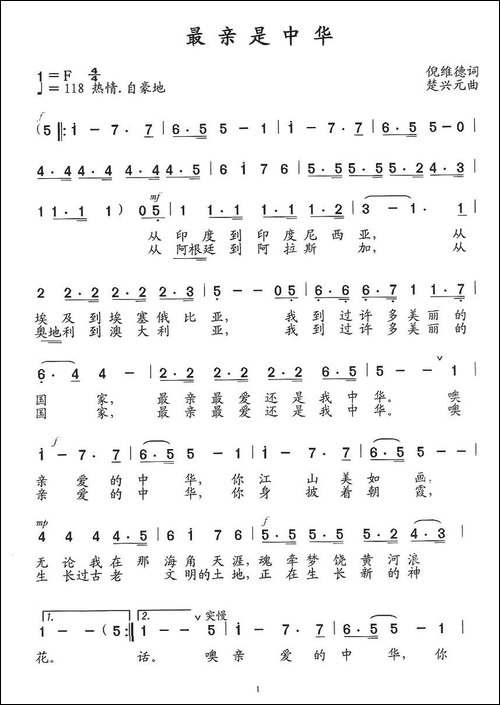 最亲是中华
1=F 4/4
♩=118 热情.自豪地
倪维德词
楚兴元曲
f
(5 ‖: i - 7 . 7 | 6 . 5 5 - 1 | i - 7 . 7 | 6 . 5 5 - 0 |
4 . 4 4 . 4 4 . 4 4 . 5 | 6 i 7 6 | 5 . 5 5 . 5 5 . 2 4 . 3 |
mf
1 1 . 1 1 ) 0 5 | 1 1 . 1 1 . 1 1 . 2 | 3 - 1 . 1 |
从 印 度 到 印 度 尼 西 亚, 从
从 阿根廷 到 阿 拉 斯 加, 从
2 2 . 2 2 . 2 2 . 3 | 5 - - 0 5 | 6 . 6 6 . 7 1 1 . 7 |
埃 及 到 埃 塞 俄 比 亚, 我 到 过 许 多 美 丽 的
奥地利 到 澳 大 利 亚, 我 到 过 许 多 美 丽 的
6 . 4 4 - | 2 . 2 2 . 2 2 . 3 6 . 5 | 5 - - 1 |
国 家, 最 亲 最 爱 还 是 我 中 华。 噢
国 家, 最 亲 最 爱 还 是 我 中 华。 噢
f
i - 7 . 7 | 6 . 5 5 - 1 | i - 7 . 7 | 6 . 5 5 - - |
亲 爱 的 中 华, 你 江 山 美 如 画,
亲 爱 的 中 华, 你 身 披 着 朝 霞,
mp f
4 4 4 4 . 5 | 6 i 7 6 | 5 . 5 5 . 5 5 2 4 . 3 |
无 论 我 在 那 海 角 天 涯, 魂 牵 梦 饶 黄 河 浪
生 长 过 古 老 文 明 的 土 地, 正 在 生 长 新 的 神
1. 2. 突慢
1 - - (5 :‖ 1 - - 1 | i - 7 . 7 | 6 . 5 5 - 1 |
花。 话。 噢 亲 爱 的 中 华, 你
1